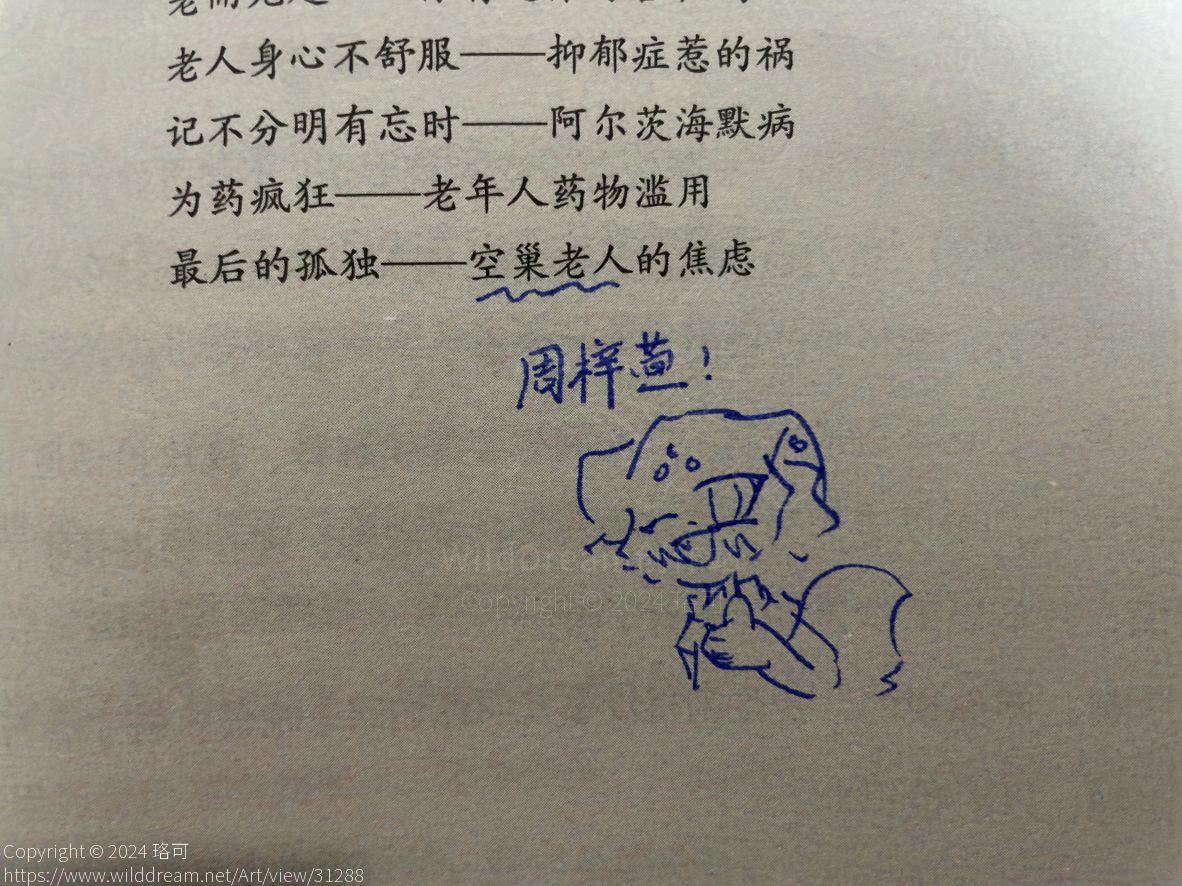 老人身心不舒服——抑郁症惹的祸
记不分明有忘时——阿尔茨海默病
为药疯狂——老年人药物滥用
最后的孤独——空巢老人的焦虑
周梓萱！
WildDream
Copyright © 2024 珞可
Copyright © 2024 珞可
https://www.wilddream.net/Art/view/31288